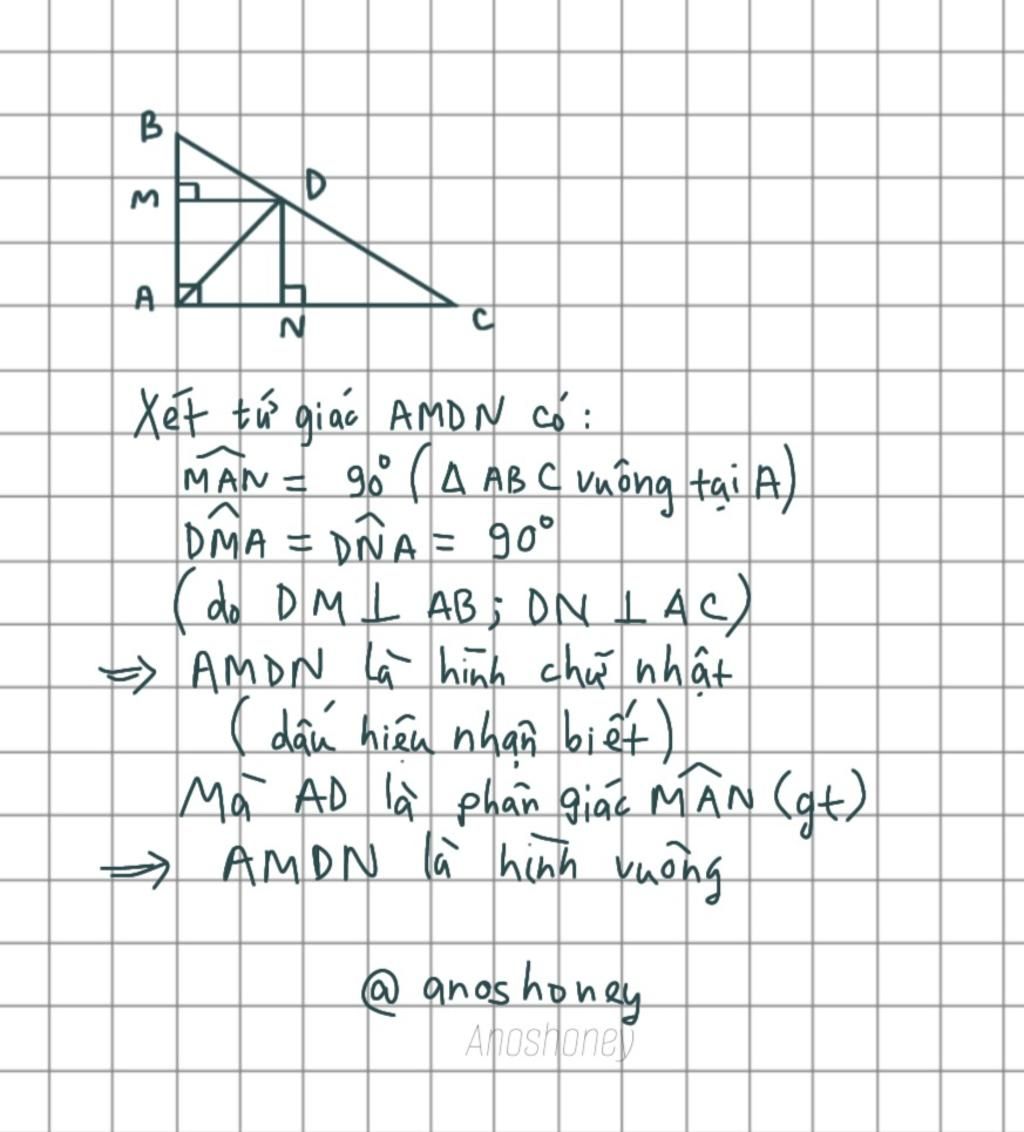 B
M
D
A
N
C
Xét tứ giác AMDN có:
MÂN = 90° (Δ ABC vuông tại A)
DM̂A = DN̂A = 90°
(do DM ⊥ AB; DN ⊥ AC)
⇒ AMDN là hình chữ nhật
(dấu hiệu nhận biết)
Mà AD là phân giác MÂN (gt)
⇒ AMDN là hình vuông
@anoshoney
Anoshoney